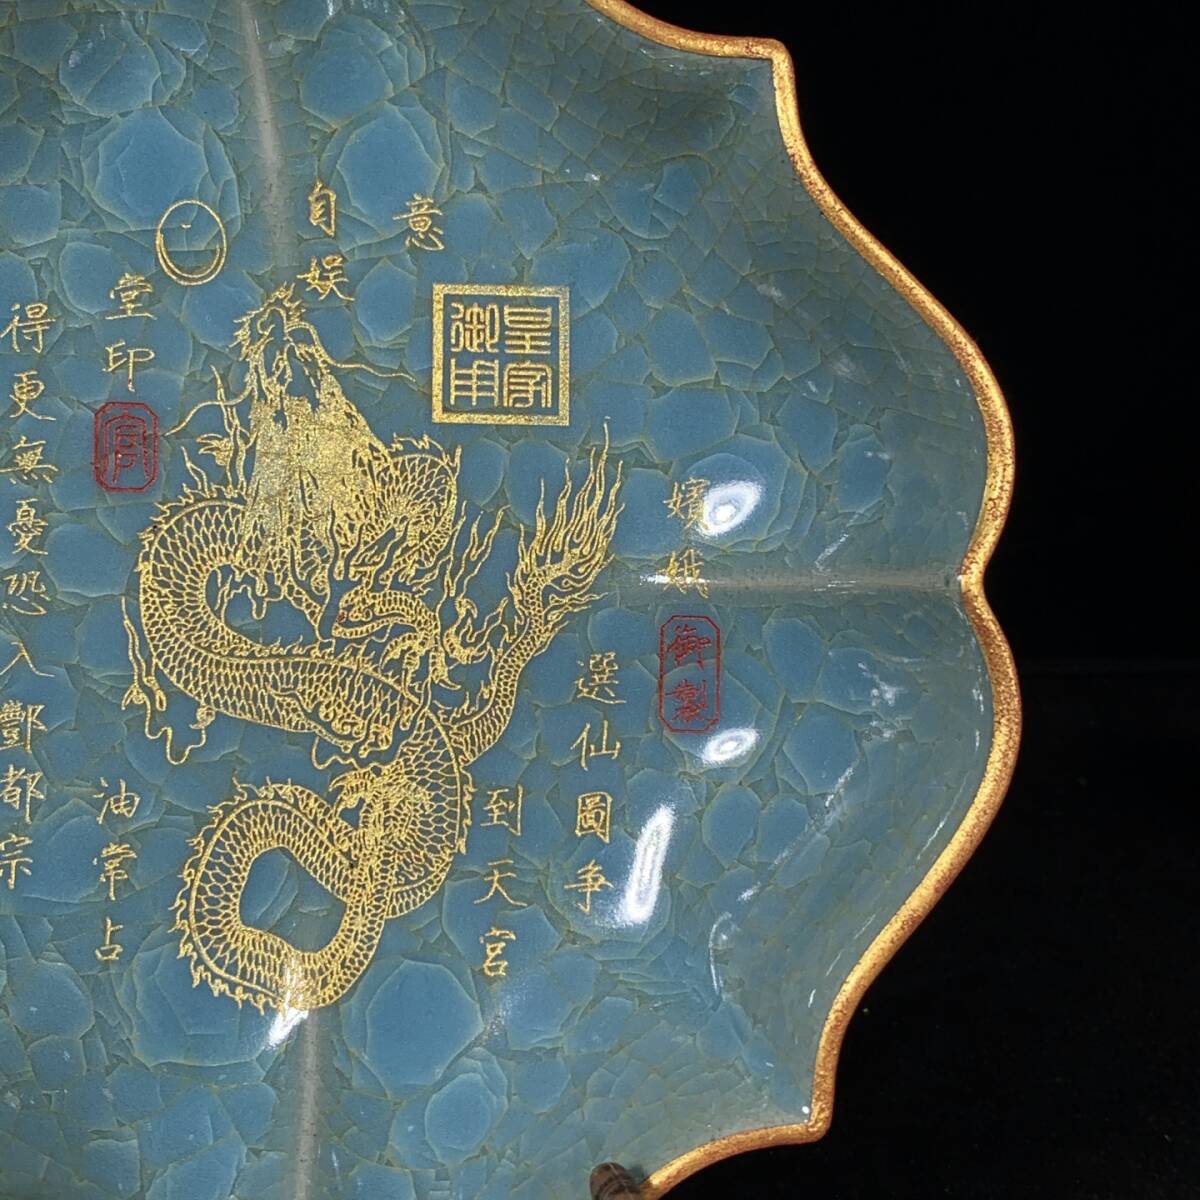 嬪娥
御製
選仙圖爭
到天宮
意
皇家
御用
自娱
堂印
官
油常占
得更無憂恐入酆都宗